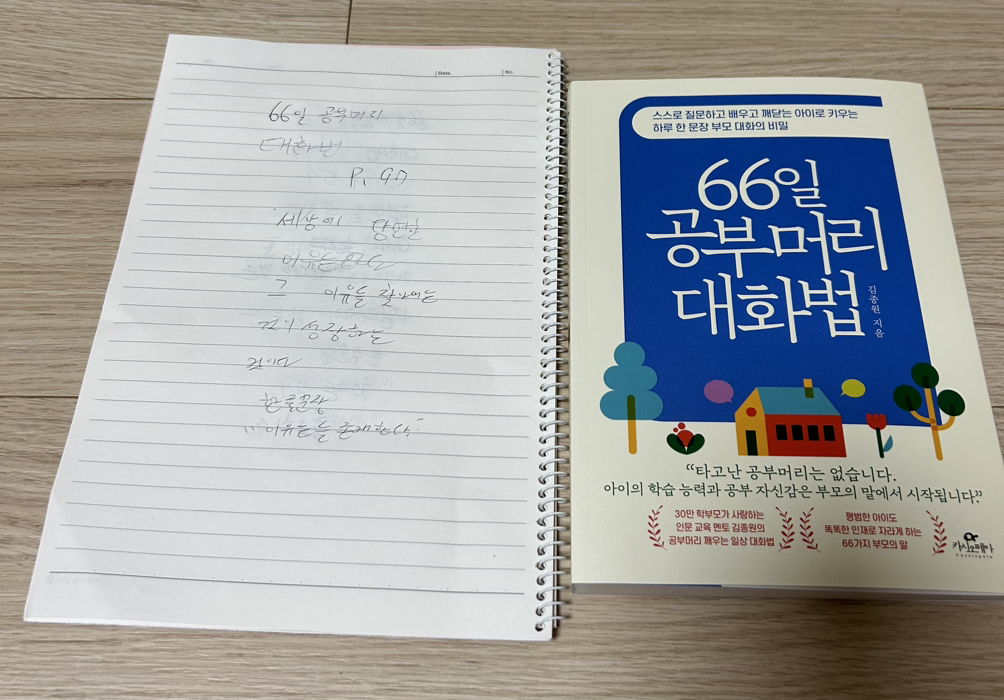 Date.
No.
66일 공부머리
대화법
P. 90
세상에 당연한
이유는 없다
그 이유를 찾아내는
것이 성장하는
것이다
한줄문장
"이유는 늘 존재한다."
스스로 질문하고 배우고 깨닫는 아이로 키우는
하루 한 문장 부모 대화의 비밀
66일
공부머리
대화법
김종원 지음
“타고난 공부머리는 없습니다.
아이의 학습 능력과 공부 자신감은 부모의 말에서 시작됩니다.”
30만 학부모가 사랑하는
인문 교육 멘토 김종원의
공부머리 깨우는 일상 대화법
평범한 아이도
똑똑한 인재로 자라게 하는
66가지 부모의 말
카시오페아